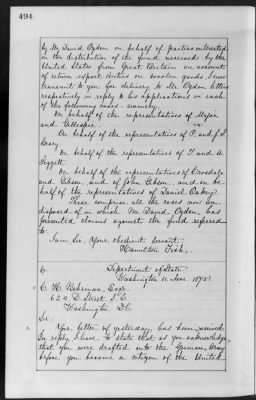 494
by Mr David Ogden on behalf of parties interested
in the distribution of the fund received by the
United States from Great Britain on account
of return export duties on woolen goods, I now
transmit to you for delivery to Mr Ogden letters
respectively in reply to his applications in each
of the following cases namely,
On behalf of the representatives of Major
and Gillespie.
On behalf of the representatives of P. and J. S.
Crary
On behalf of the representatives of T. and A.
Leggett
On behalf of the representatives of Crosdale
and Gibson, and of John Gibson, and on be-
half of the representatives of Daniel Oakey.
These comprise all the cases now un-
disposed of in which Mr David Ogden, has
presented claims against the fund referred
to.
I am Sir, Your obedient servant,
Hamilton Fish.
Department of State
Washington 11. Nov. 1873
C. H. Boherman, Esqr
D. Street S.E.
Washington D.C.
Sir,
Your letter of yesterday, has been received
In reply I have to state that as you acknowledge
that you were drafted into the German Army
before you became a citizen of the United